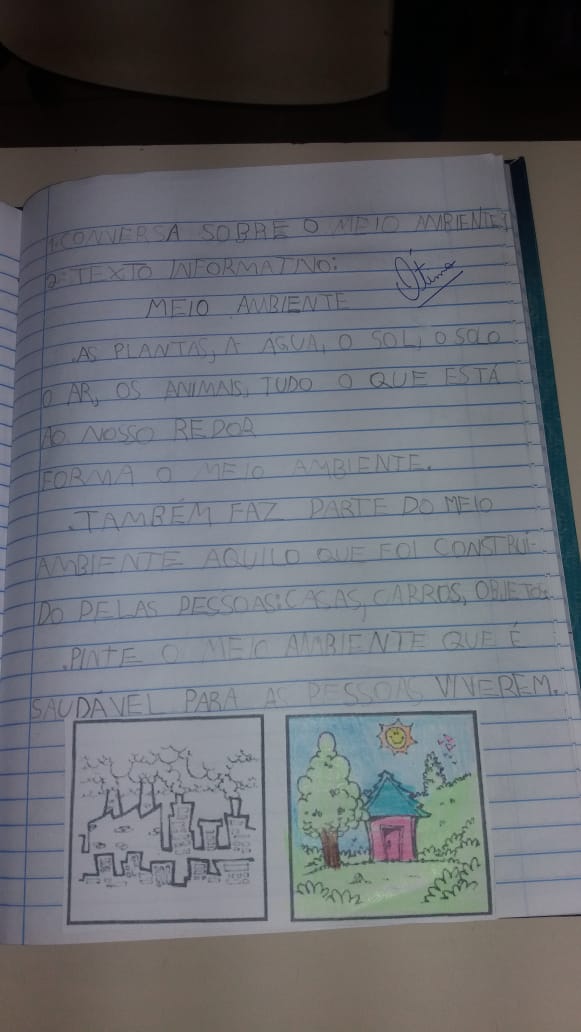 1: CONVERSA SOBRE O MEIO AMBIENTE:
2: TEXTO INFORMATIVO:
Ótimo
MEIO AMBIENTE
.AS PLANTAS, A ÁGUA, O SOL, O SOLO
O AR, OS ANIMAIS, TUDO O QUE ESTÁ
AO NOSSO REDOR
FORMA O MEIO AMBIENTE.
.TAMBÉM FAZ PARTE DO MEIO
AMBIENTE AQUILO QUE FOI CONSTRUÍ-
DO PELAS PESSOAS: CASAS, CARROS, OBJETOS
.PINTE O MEIO AMBIENTE QUE É
SAUDÁVEL PARA AS PESSOAS VIVEREM.